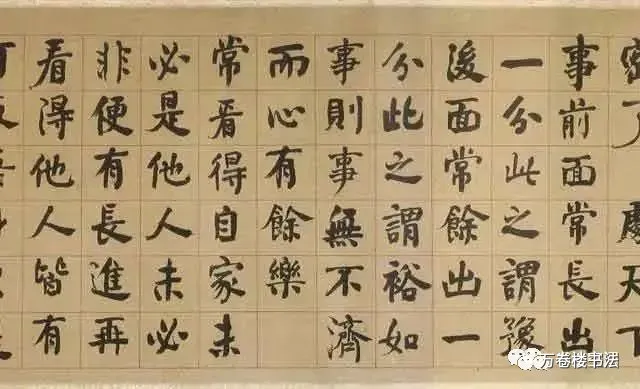 處天下
事前面常長出
一分此之謂豫
後面常餘出一
分此之謂裕如
事則事無不濟
而心有餘樂
常看得自家未
必是他人未必
非便有長進再
看得他人皆有
万卷楼书法